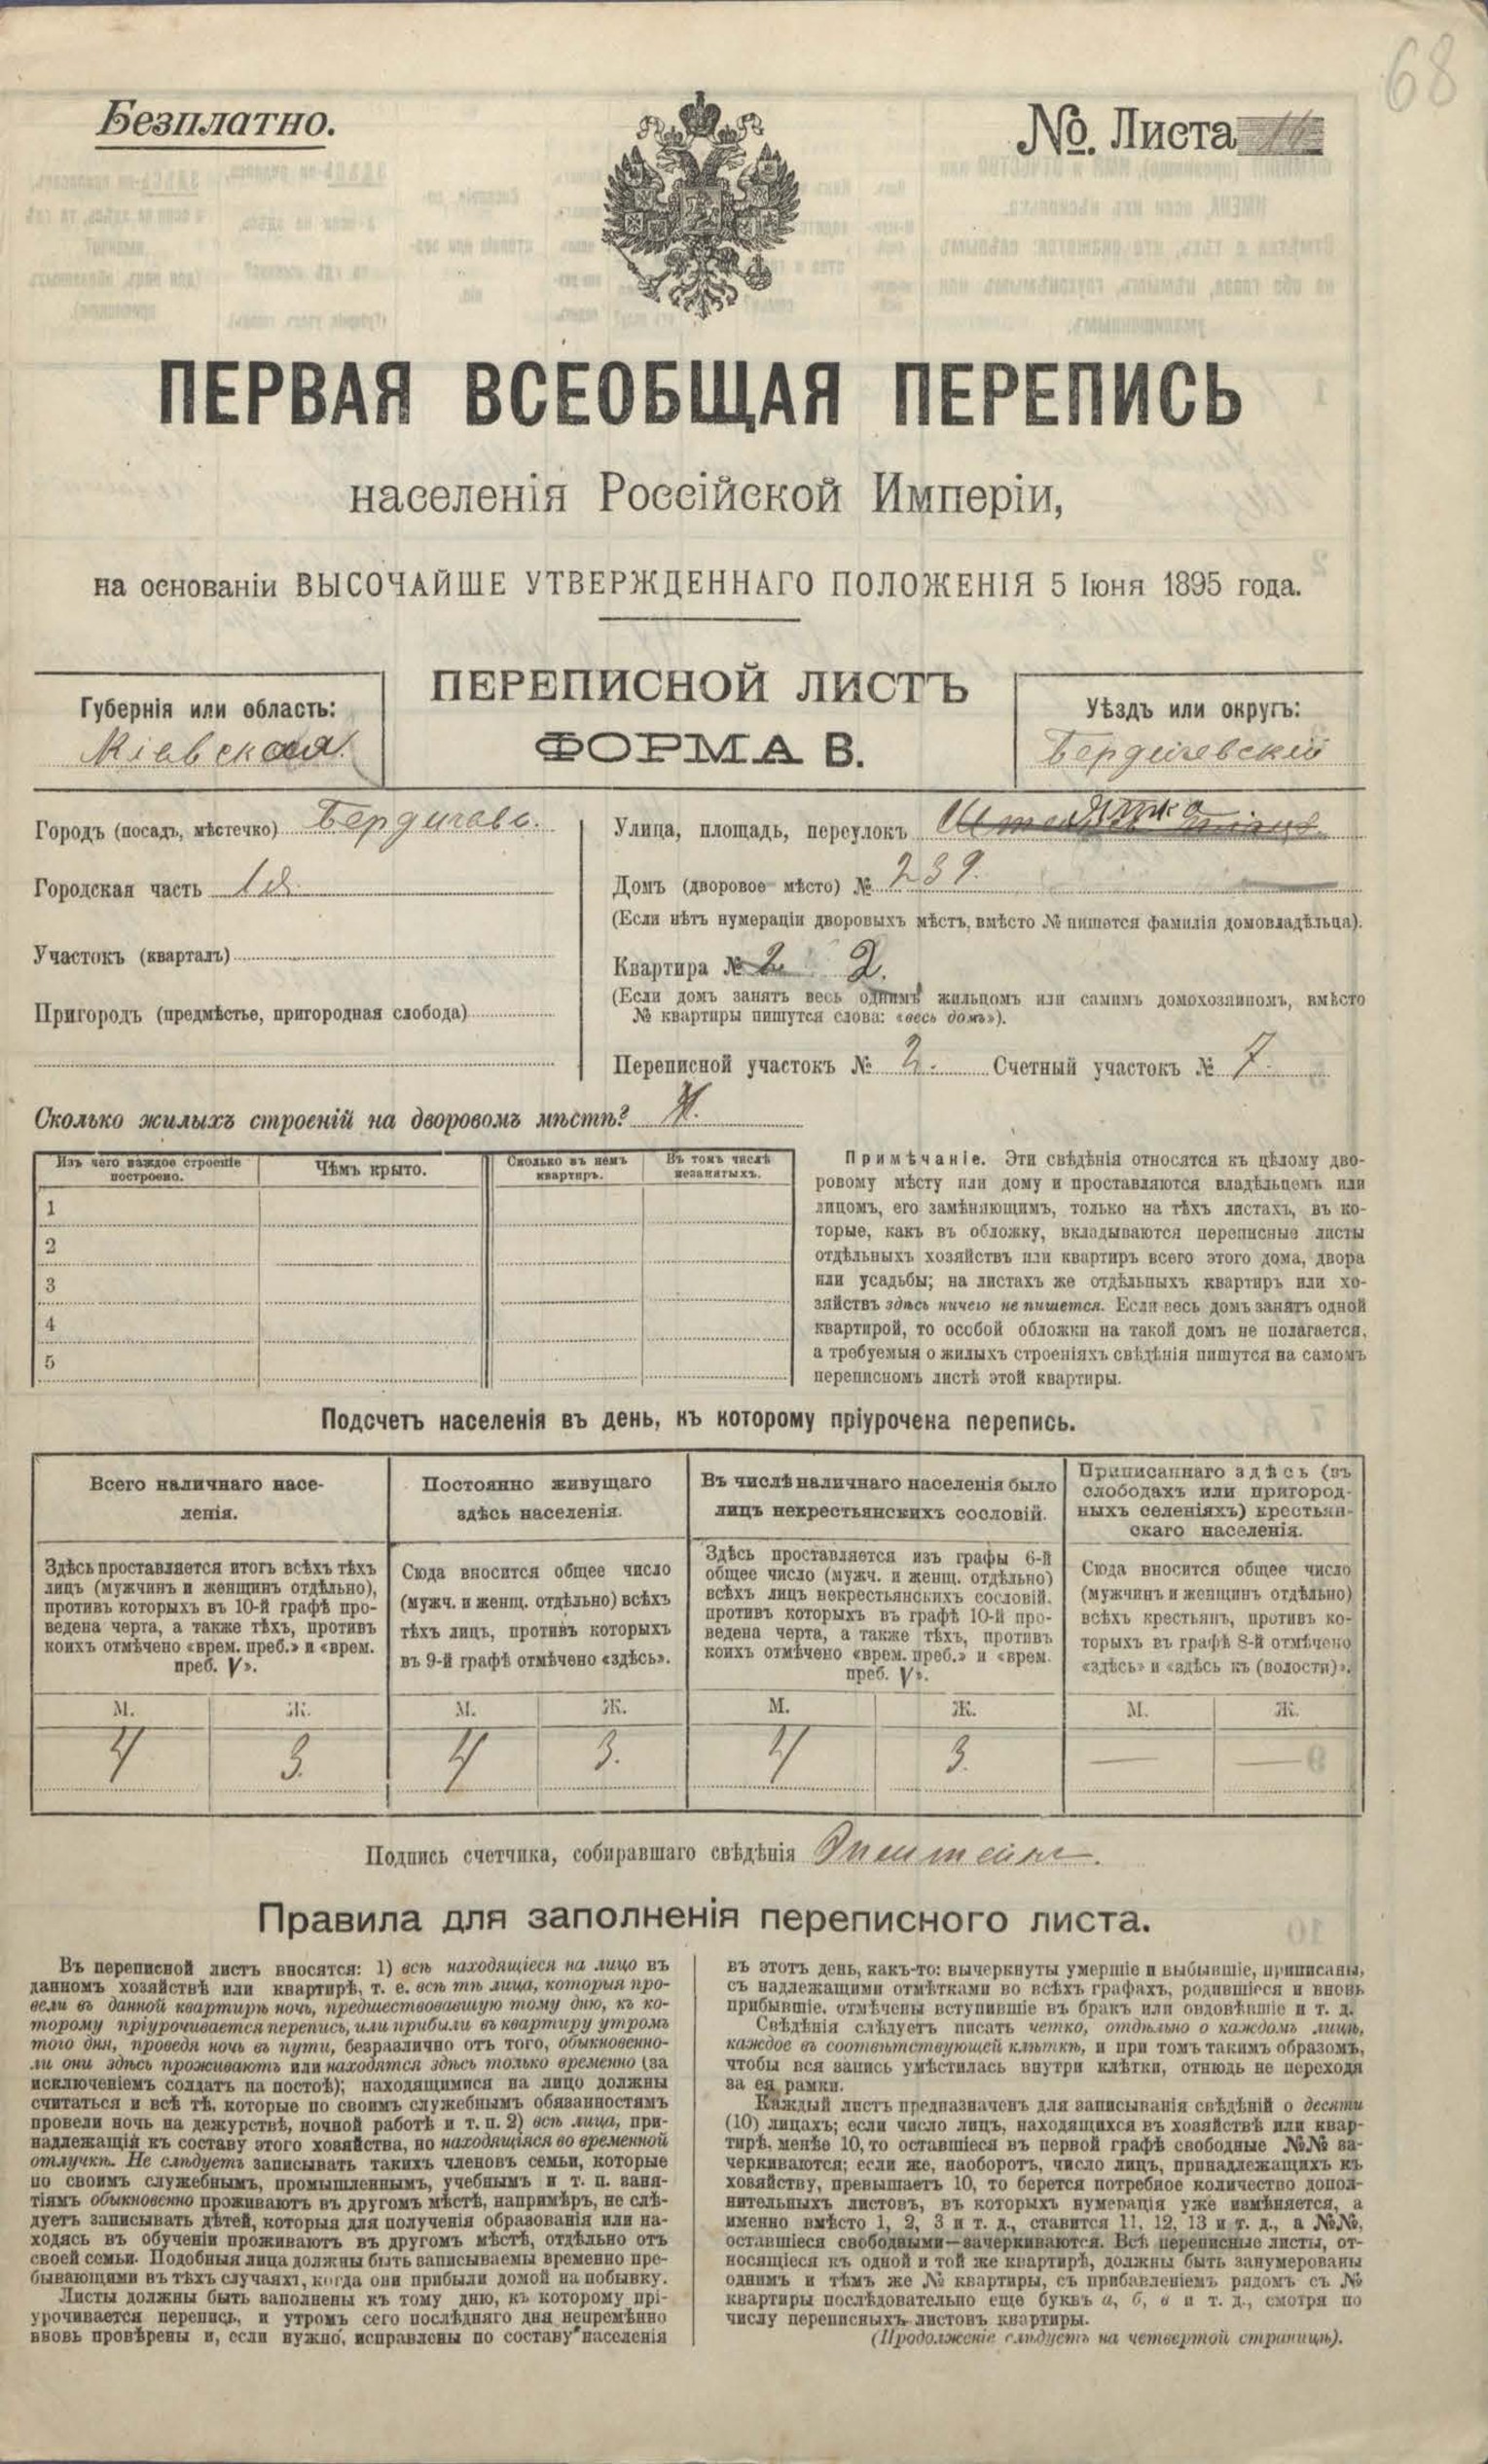 68
Безплатно.
№. Листа 16
ПЕРВАЯ ВСЕОБЩАЯ ПЕРЕПИСЬ
населенія Россійской Имперіи,
на основаніи ВЫСОЧАЙШЕ УТВЕРЖДЕННАГО ПОЛОЖЕНІЯ 5 Іюня 1895 года.
Губернія или область:
Кіевская
ПЕРЕПИСНОЙ ЛИСТЪ
ФОРМА В.
Уѣздъ или округъ:
Бердичевскій
Городъ (посадъ, мѣстечко) Бердичевъ.
Городская часть 1я
Участокъ (кварталъ)
Пригородъ (предмѣстье, пригородная слобода)
Улица, площадь, переулокъ
Домъ (дворовое мѣсто) № 239.
(Если нѣтъ нумераціи дворовыхъ мѣстъ, вмѣсто № пишется фамилія домовладѣльца).
Квартира № 2 2.
(Если домъ занятъ весь однимъ жильцомъ или самимъ домохозяиномъ, вмѣсто
№ квартиры пишутся слова: «весь домъ»).
Переписной участокъ № 2. Счетный участокъ № 7.
Сколько жилыхъ строеній на дворовомъ мѣстѣ?
Изъ чего каждое строеніе построено.
Чѣмъ крыто.
Сколько въ немъ квартиръ.
Въ томъ числѣ незанятыхъ.
1
2
3
4
5
Примѣчаніе. Эти свѣдѣнія относятся къ цѣлому дво-
ровому мѣсту или дому и проставляются владѣльцемъ или
лицомъ, его замѣняющимъ, только на тѣхъ листахъ, въ ко-
торые, какъ въ обложку, вкладываются переписные листы
отдѣльныхъ хозяйствъ или квартиръ всего этого дома, двора
или усадьбы; на листахъ же отдѣльныхъ квартиръ или хо-
зяйствъ здѣсь ничего не пишется. Если весь домъ занятъ одной
квартирой, то особой обложки на такой домъ не полагается,
а требуемыя о жилыхъ строеніяхъ свѣдѣнія пишутся на самомъ
переписномъ листѣ этой квартиры.
Подсчетъ населенія въ день, къ которому пріурочена перепись.
Всего наличнаго насе-
ленія.
Постоянно живущаго
здѣсь населенія.
Въ числѣ наличнаго населенія было
лицъ некрестьянскихъ сословій.
Приписаннаго здѣсь (въ
слободахъ или пригород-
ныхъ селеніяхъ) крестьян-
скаго населенія.
Здѣсь проставляется итогъ всѣхъ тѣхъ
лицъ (мужчинъ и женщинъ отдѣльно),
противъ которыхъ въ 10-й графѣ про-
ведена черта, а также тѣхъ, противъ
коихъ отмѣчено «врем. преб.» и «врем.
преб. V».
Сюда вносится общее число
(мужч. и женщ. отдѣльно) всѣхъ
тѣхъ лицъ, противъ которыхъ
въ 9-й графѣ отмѣчено «здѣсь».
Здѣсь проставляется изъ графы 6-й
общее число (мужч. и женщ. отдѣльно)
всѣхъ лицъ некрестьянскихъ сословій,
противъ которыхъ въ графѣ 10-й про-
ведена черта, а также тѣхъ, противъ
коихъ отмѣчено «врем. преб.» и «врем.
преб. V».
Сюда вносится общее число
(мужчинъ и женщинъ отдѣльно)
всѣхъ крестьянъ, противъ ко-
торыхъ въ графѣ 8-й отмѣчено
«здѣсь» и «здѣсь къ (волости)».
М. Ж. М. Ж. М. Ж. М. Ж.
4 3. 4 3. 4 3. — —
Подпись счетчика, собиравшаго свѣдѣнія Эпштейнъ.
Правила для заполненія переписного листа.
Въ переписной листъ вносятся: 1) всѣ находящіеся на лицо въ
данномъ хозяйствѣ или квартирѣ, т. е. всѣ тѣ лица, которыя про-
вели въ данной квартирѣ ночь, предшествовавшую тому дню, къ ко-
торому пріурочивается перепись, или прибыли въ квартиру утромъ
того дня, проведя ночь въ пути, безразлично отъ того, обыкновенно-
ли они здѣсь проживаютъ или находятся здѣсь только временно (за
исключеніемъ солдатъ на постоѣ); находящимися на лицо должны
считаться и всѣ тѣ, которые по своимъ служебнымъ обязанностямъ
провели ночь на дежурствѣ, ночной работѣ и т. п. 2) всѣ лица, при-
надлежащія къ составу этого хозяйства, но находящіяся во временной
отлучкѣ. Не слѣдуетъ записывать такихъ членовъ семьи, которые
по своимъ служебнымъ, промышленнымъ, учебнымъ и т. п. заня-
тіямъ обыкновенно проживаютъ въ другомъ мѣстѣ, напримѣръ, не слѣ-
дуетъ записывать дѣтей, которыя для полученія образованія или на-
ходясь въ обученіи проживаютъ въ другомъ мѣстѣ, отдѣльно отъ
своей семьи. Подобныя лица должны быть записываемы временно пре-
бывающими въ тѣхъ случаяхъ, когда они прибыли домой на побывку.
Листы должны быть заполнены къ тому дню, къ которому прі-
урочивается перепись, и утромъ сего послѣдняго дня непремѣнно
вновь провѣрены и, если нужно, исправлены по составу населенія
въ этотъ день, какъ-то: вычеркнуты умершіе и выбывшіе, приписаны,
съ надлежащими отмѣтками во всѣхъ графахъ, родившіеся и вновь
прибывшіе, отмѣчены вступившіе въ бракъ или овдовѣвшіе и т. д.
Свѣдѣнія слѣдуетъ писать четко, отдѣльно о каждомъ лицѣ,
каждое въ соотвѣтствующей клѣткѣ, и при томъ такимъ образомъ,
чтобы вся запись умѣстилась внутри клѣтки, отнюдь не переходя
за ея рамки.
Каждый листъ предназначенъ для записыванія свѣдѣній о десяти
(10) лицахъ; если число лицъ, находящихся въ хозяйствѣ или квар-
тирѣ, менѣе 10, то оставшіеся въ первой графѣ свободные №№ за-
черкиваются; если же, наоборотъ, число лицъ, принадлежащихъ къ
хозяйству, превышаетъ 10, то берется потребное количество допол-
нительныхъ листовъ, въ которыхъ нумерація уже измѣняется, а
именно вмѣсто 1, 2, 3 и т. д., ставится 11, 12, 13 и т. д., а №№,
оставшіеся свободными—зачеркиваются. Всѣ переписные листы, от-
носящіеся къ одной и той же квартирѣ, должны быть занумерованы
однимъ и тѣмъ же № квартиры, съ прибавленіемъ рядомъ съ №
квартиры послѣдовательно еще буквъ а, б, в и т. д., смотря по
числу переписныхъ листовъ квартиры.
(Продолженіе слѣдуетъ на четвертой страницѣ).